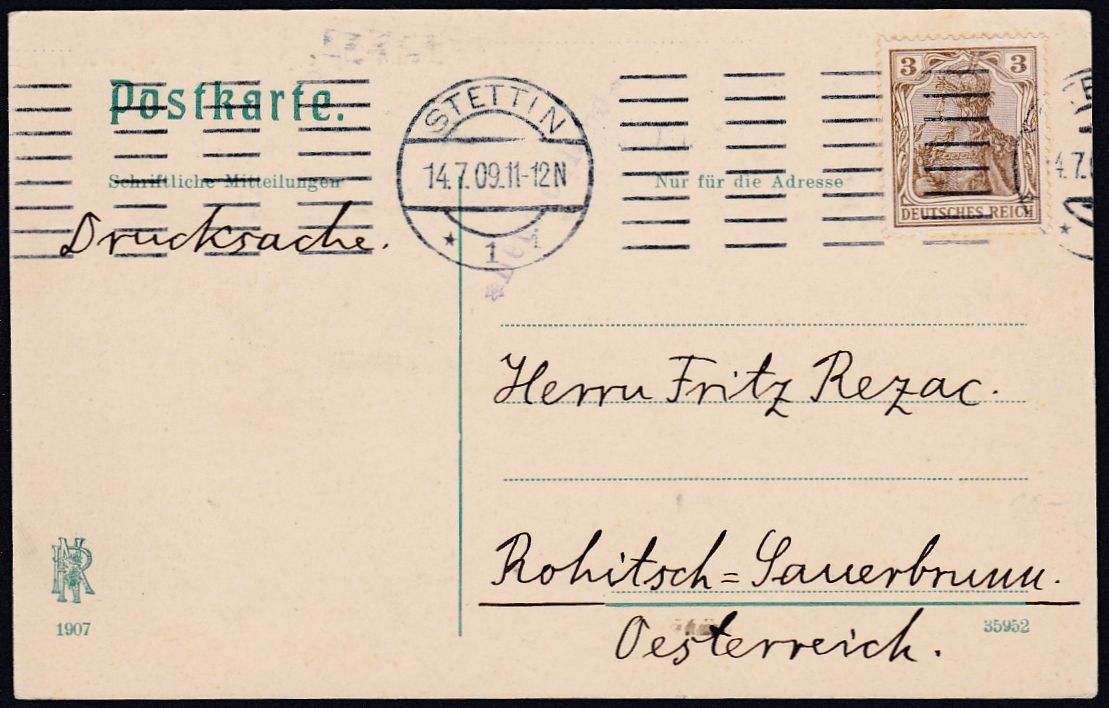 Postkarte.
STETTIN
14.7.09.11-12N
* 1
3 3
DEUTSCHES REICH
4.7.0
Schriftliche Mitteilungen
Nur für die Adresse
Drucksache.
Herrn Fritz Rezac.
Rohitsch=Sauerbrunn.
Oesterreich.
NRT
1907
35952